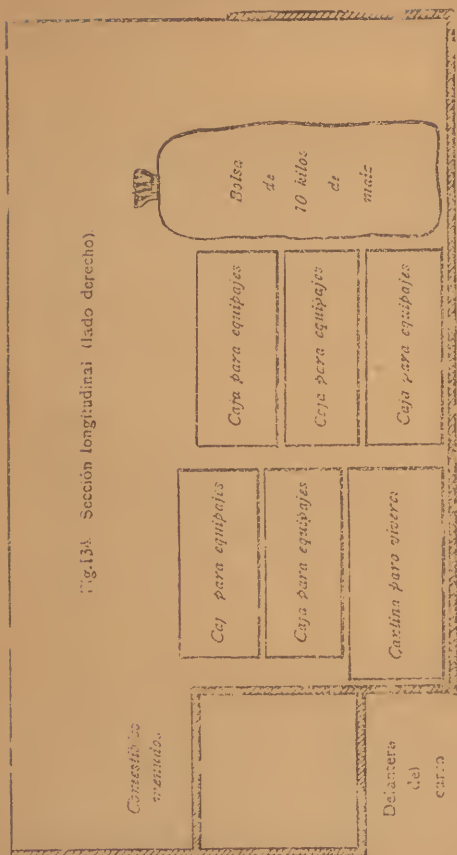 Fig.134. Sección longitudinal (lado derecho).
Comestibles
menudos
Delantera
del
carro
Caj para equipajes
Caja para equipajes
Cantina para viveres
Caja para equipajes
Caja para equipajes
Caja para equipajes
Bolsa
de
10 kilos
de
maiz